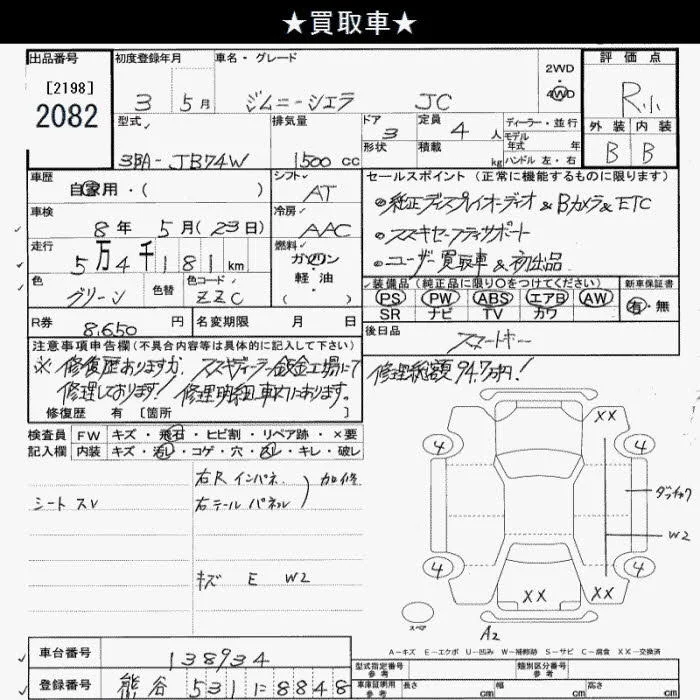 ★買取車★
出品番号 初度登録年月 車名・グレード 2WD 評価点
[2198] 3 5月 ジムニーシエラ JC ・ R小
2082 4WD
型式 排気量 ドア 定員 ディーラー・並行 外装 内装
3 4 人 モデル
3BA-JB74W 1500 cc 形状 積載 kg 年式 年 B B
ハンドル 左・右
車歴 自家用・( ) シフト AT セールスポイント (正常に機能するものに限ります)
車検 8年 5月(23日) 冷房 AAC ●純正ディスプレイオーディオ&Bカメラ&ETC
走行 5万4千181km 燃料 ガソリン・軽油 ●スズキセーフティサポート
●ユーザー買取車&初出品
色 グリーン 色替 色コード ZZC 装備品(純正品に限り○をつけてください) 新車保証書
PS PW ABS エアB AW 有・無
SR ナビ TV カワ
R券 8,650 円 名変期限 月 日 後日品 スマートキー
注意事項申告欄(不具合内容等は具体的に記入して下さい)
※修復歴ありますが、スズキディーラー鈑金工場にて 修理総額94.7万円!
修理しております! 修理明細車内にあります。
修復歴 有 [箇所 ]
検査員 FW キズ・飛石・ヒビ割・リペア跡・×要
記入欄 内装 キズ・汚し・コゲ・穴・凹・キレ・破レ
XX
4 4
右Rインパネ 加修
シート スレ 右テールパネル
ダッチャク
W2
キズ E W2
4 4
XX XX
スペア
A2
A-キズ E-エクボ U-凹み W-補修跡 S-サビ C-腐食 XX-交換済
車台番号 138934 型式指定番号 参考 類別区分番号 参考
登録番号 熊谷 531 に 8848 車庫証明用 参考 長さ cm 幅 cm 高さ cm